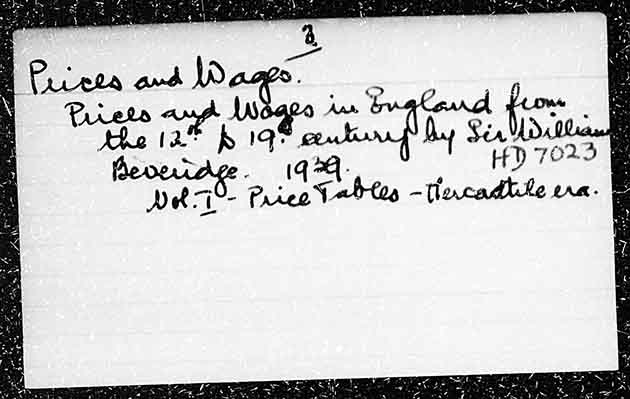 3
Prices and Wages.
Prices and Wages in England from
the 12th to 19th century by Sir William
HD 7023
Beveridge. 1939.
Vol. I - Price Tables - Mercantile era.